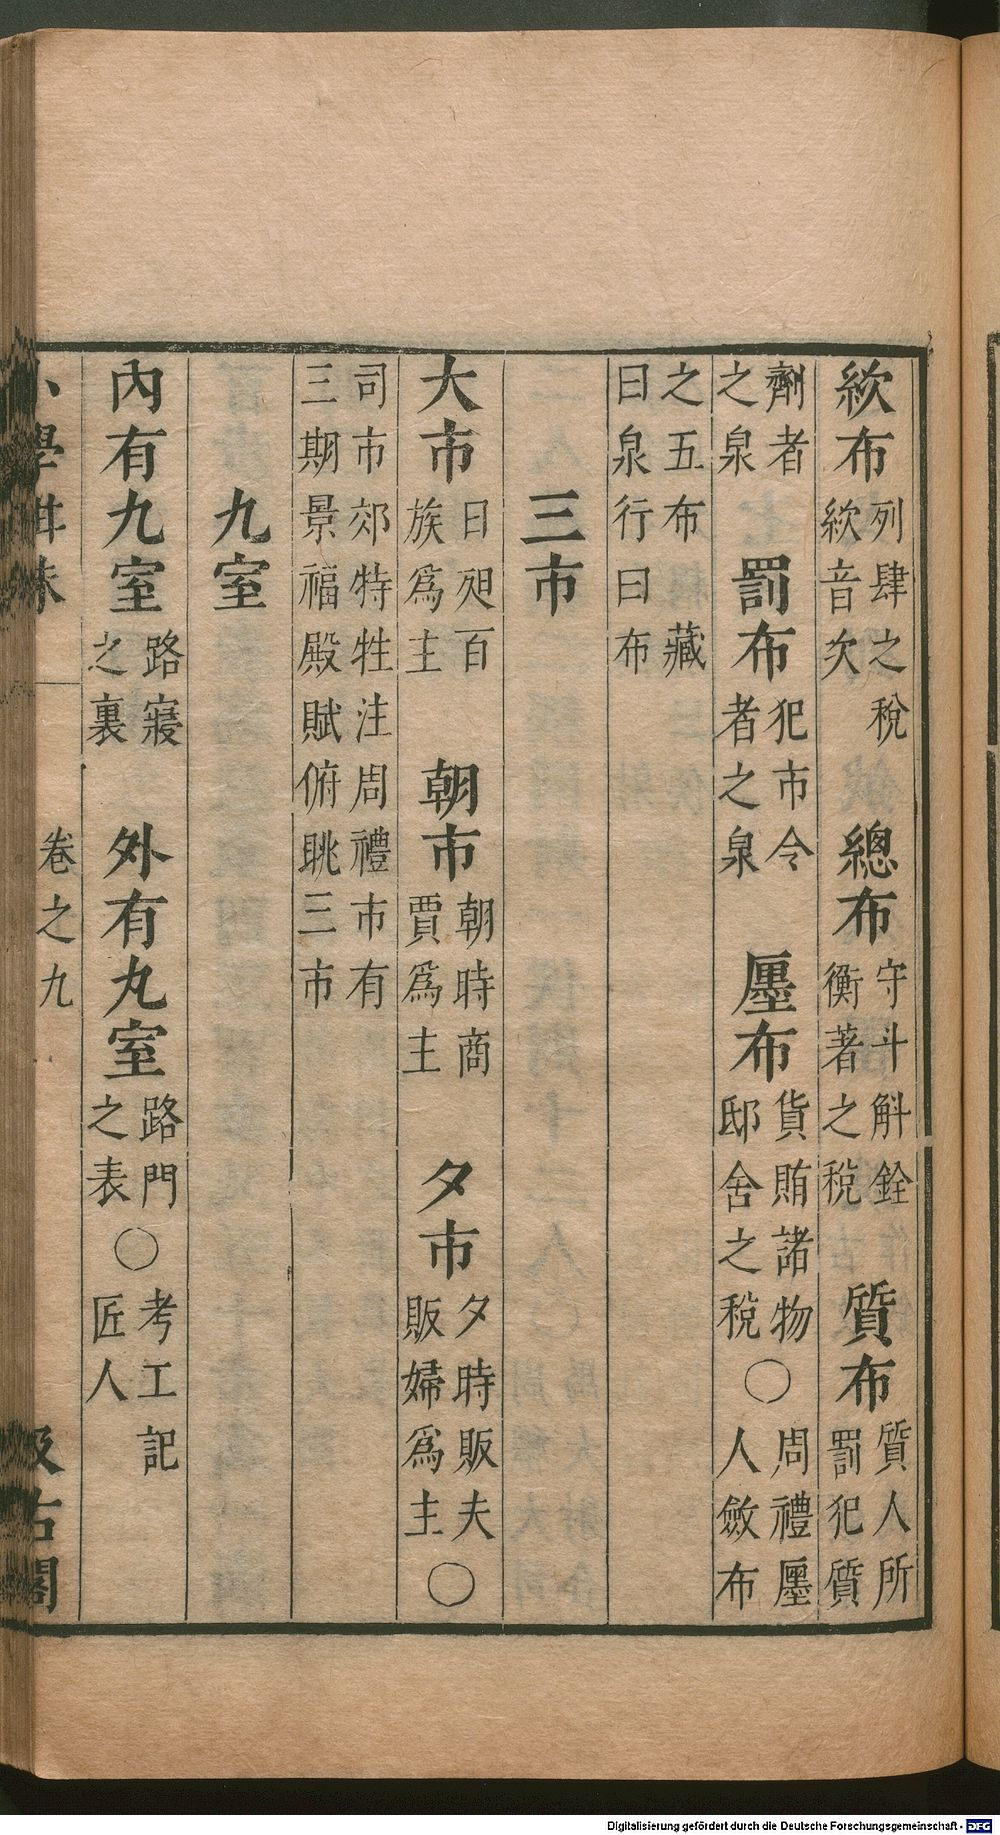 絘布列肆之稅絘音次　總布守斗斛銓衡著之稅　質布質人所罰犯質
劑者之泉　罰布犯市令者之泉　廛布貨賄諸物邸舍之稅○周禮廛人斂布
之五布藏曰泉行曰布
三市
大市日昃百族爲主　朝市朝時商賈爲主　夕市夕時販夫販婦爲主○
司市郊特牲注周禮市有三期景福殿賦俯眺三市
九室
內有九室路寢之裏　外有丸室路門之表○考工記匠人
小學紺珠　卷之九　汲古閣
Digitalisierung gefördert durch die Deutsche Forschungsgemeinschaft - DFG